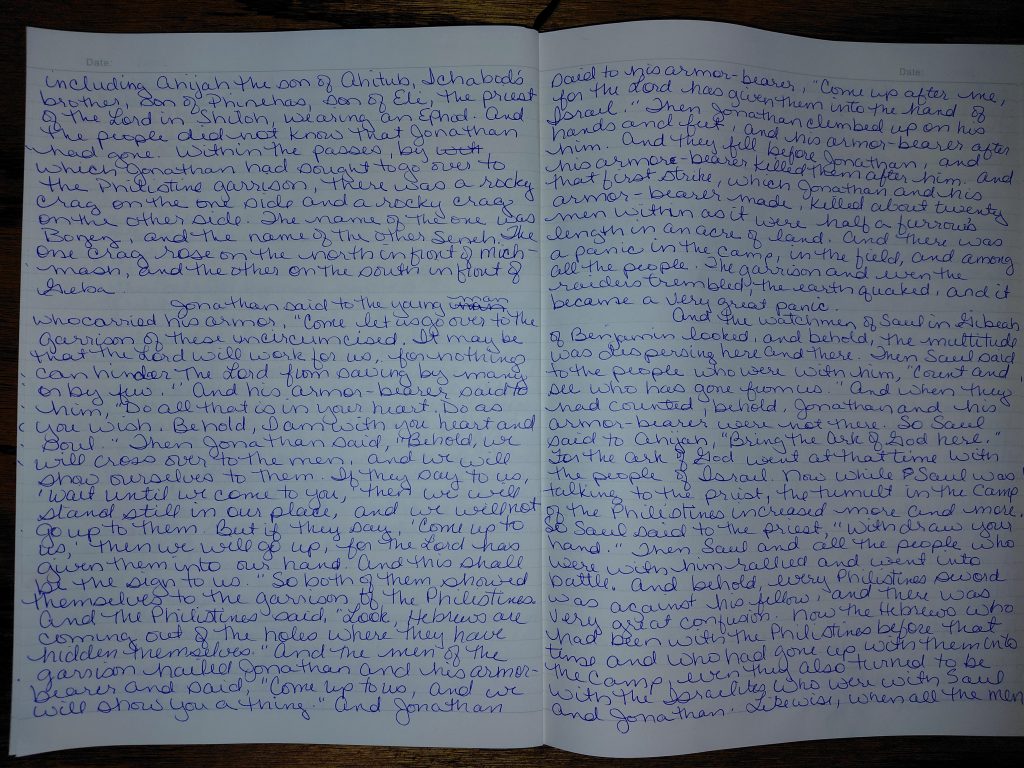 Date:
including Ahijah the son of Ahitub, Ichabod's
brother, son of Phinehas, son of Eli, the priest
of the Lord in Shiloh, wearing an Ephod. And
the people did not know that Jonathan
had gone. Within the passes, by with,
which Jonathan had sought to go over to
the Philistine garrison, there was a rocky
crag on the one side and a rocky crag
on the other side. The name of the one was
Bozez, and the name of the other Seneh. The
one crag rose on the north in front of Mich-
mash, and the other on the south in front of
Geba.
Jonathan said to the young man
who carried his armor, "Come let us go over to the
garrison of these uncircumcised. It may be
that the Lord will work for us, for nothing
can hinder the Lord from saving by many
or by few." And his armor-bearer said to
him, "Do all that is in your heart. Do as
you wish. Behold, I am with you heart and
soul." Then Jonathan said, "Behold, we
will cross over to the men, and we will
show ourselves to them. If they say to us,
'Wait until we come to you,' then we will
stand still in our place, and we will not
go up to them. But if they say, 'Come up to
us,' then we will go up, for the Lord has
given them into our hand. And this shall
be the sign to us." So both of them showed
themselves to the garrison of the Philistines.
And the Philistines said, "Look, Hebrews are
coming out of the holes where they have
hidden themselves." And the men of the
garrison hailed Jonathan and his armor-
bearer and said, "Come up to us, and we
will show you a thing." And Jonathan
Date:
said to his armor-bearer, "Come up after me,
for the Lord has given them into the hand of
Israel." Then Jonathan climbed up on his
hands and feet, and his armor-bearer after
him. And they fell before Jonathan, and
his armore-bearer killed them after him. And
that first strike, which Jonathan and his
armor-bearer made, killed about twenty
men within as it were half a furrow's
length in an acre of land. And there was
a panic in the camp, in the field, and among
all the people. The garrison and even the
raiders trembled, the earth quaked, and it
became a very great panic.
And the watchmen of Saul in Gibeah
of Benjamin looked, and behold, the multitude
was dispersing here and there. Then Saul said
to the people who were with him, "Count and
see who has gone from us." And when they
had counted, behold, Jonathan and his
armor-bearer were not there. So Saul
said to Ahijah, "Bring the Ark of God here."
For the Ark of God went at that time with
the people of Israel. Now while Saul was
talking to the priest, the tumult in the Camp
of the Philistines increased more and more.
So Saul said to the priest, "Withdraw your
hand." Then Saul and all the people who
were with him rallied and went into
battle. And behold, every Philistines sword
was against his fellow, and there was
very great confusion. Now the Hebrews who
had been with the Philistines before that
time and who had gone up with them into
the camp, even they also turned to be
with the Israelites who were with Saul
and Jonathan. Likewise, when all the men